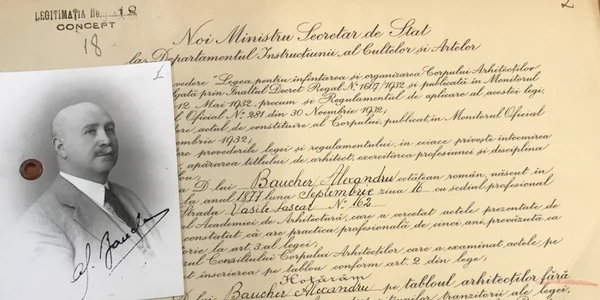 LEGITIMAȚIA No. 18
CONCEPT
18
2
1
Noi Ministru Secretar de Stat
la Departamentul Instrucțiunii, al Cultelor și Artelor
vedere "Legea pentru înființarea și organizarea Corpului Arhitecților
gată prin Înaltul Decret Regal No 1607/1932 și publicată în Monitorul
12 Mai 1932, precum și Regulamentul de aplicare al acestei legi,
Oficial No 281 din 30 Noembrie 1932;
ere actul de constituire al Corpului, publicat în Monitorul Oficial
embrie 1932;
re prevederile legei și regulamentului, în ceiace privește întocmirea
apărarea titlului de arhitect, exercitarea profesiunei și disciplina
D lui Baucher Alexandru cetățean român, născut în
la anul 1877 luna Septembrie ziua 16 cu sediul profesional
Strada Vasile Lascar No 162
ul Academiei de Arhitectură, care a cercetat actele prezentate de
constatat că are practica profesională de cinci ani, prevăzută ca
orie la art. 3 al legei,
rul Consiliului Corpului Arhitecților care a examinat actele pe
t inscrierea pe tablou conform art. 2 din lege,
Hotărâm
lui Baucher Alexandru pe tabloul arhitecților fără
tranzitorii ale legei,